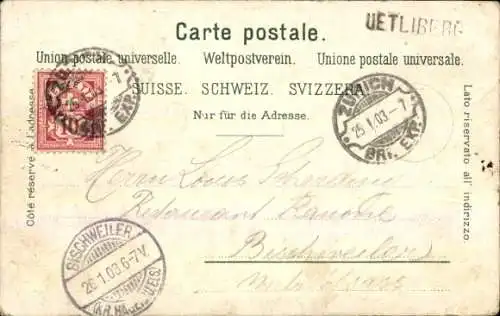 Carte postale.
UETLIBERG
Union postale universelle. Weltpostverein. Unione postale universale.
SUISSE. SCHWEIZ. SVIZZERA.
Nur für die Adresse.
Côté réservé à l'adresse.
Lato riservato all' indirizzo.
ZÜRICH
25.1.03-7
BRF. EXP.
EXP.
10
Herrn Louis
Restaurant
Bischweiler
BISCHWEILER
26.1.03.6-7V.